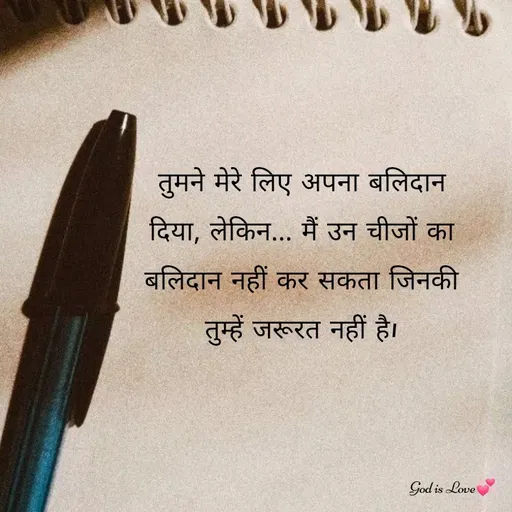 तुमने मेरे लिए अपना बलिदान
दिया, लेकिन... मैं उन चीजों का
बलिदान नहीं कर सकता जिनकी
तुम्हें जरूरत नहीं है।
God is Love💕